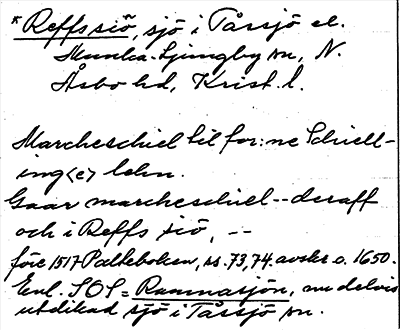 * Reffs siö, sjö i Tåssjö el.
Munka-Ljungby sn, N.
Åsbo hd, Krist. l.
Marcheschiel til for:ne Schiell-
ing<e> lehn.
Gaar marcheschiel -- deraff
och i Reffs siö, --
före 1517 Palteboken, ss. 73, 74. avskr. o. 1650.
Enl. SOS = Rammasjön, nu delvis
utdikad sjö i Tåssjö sn.